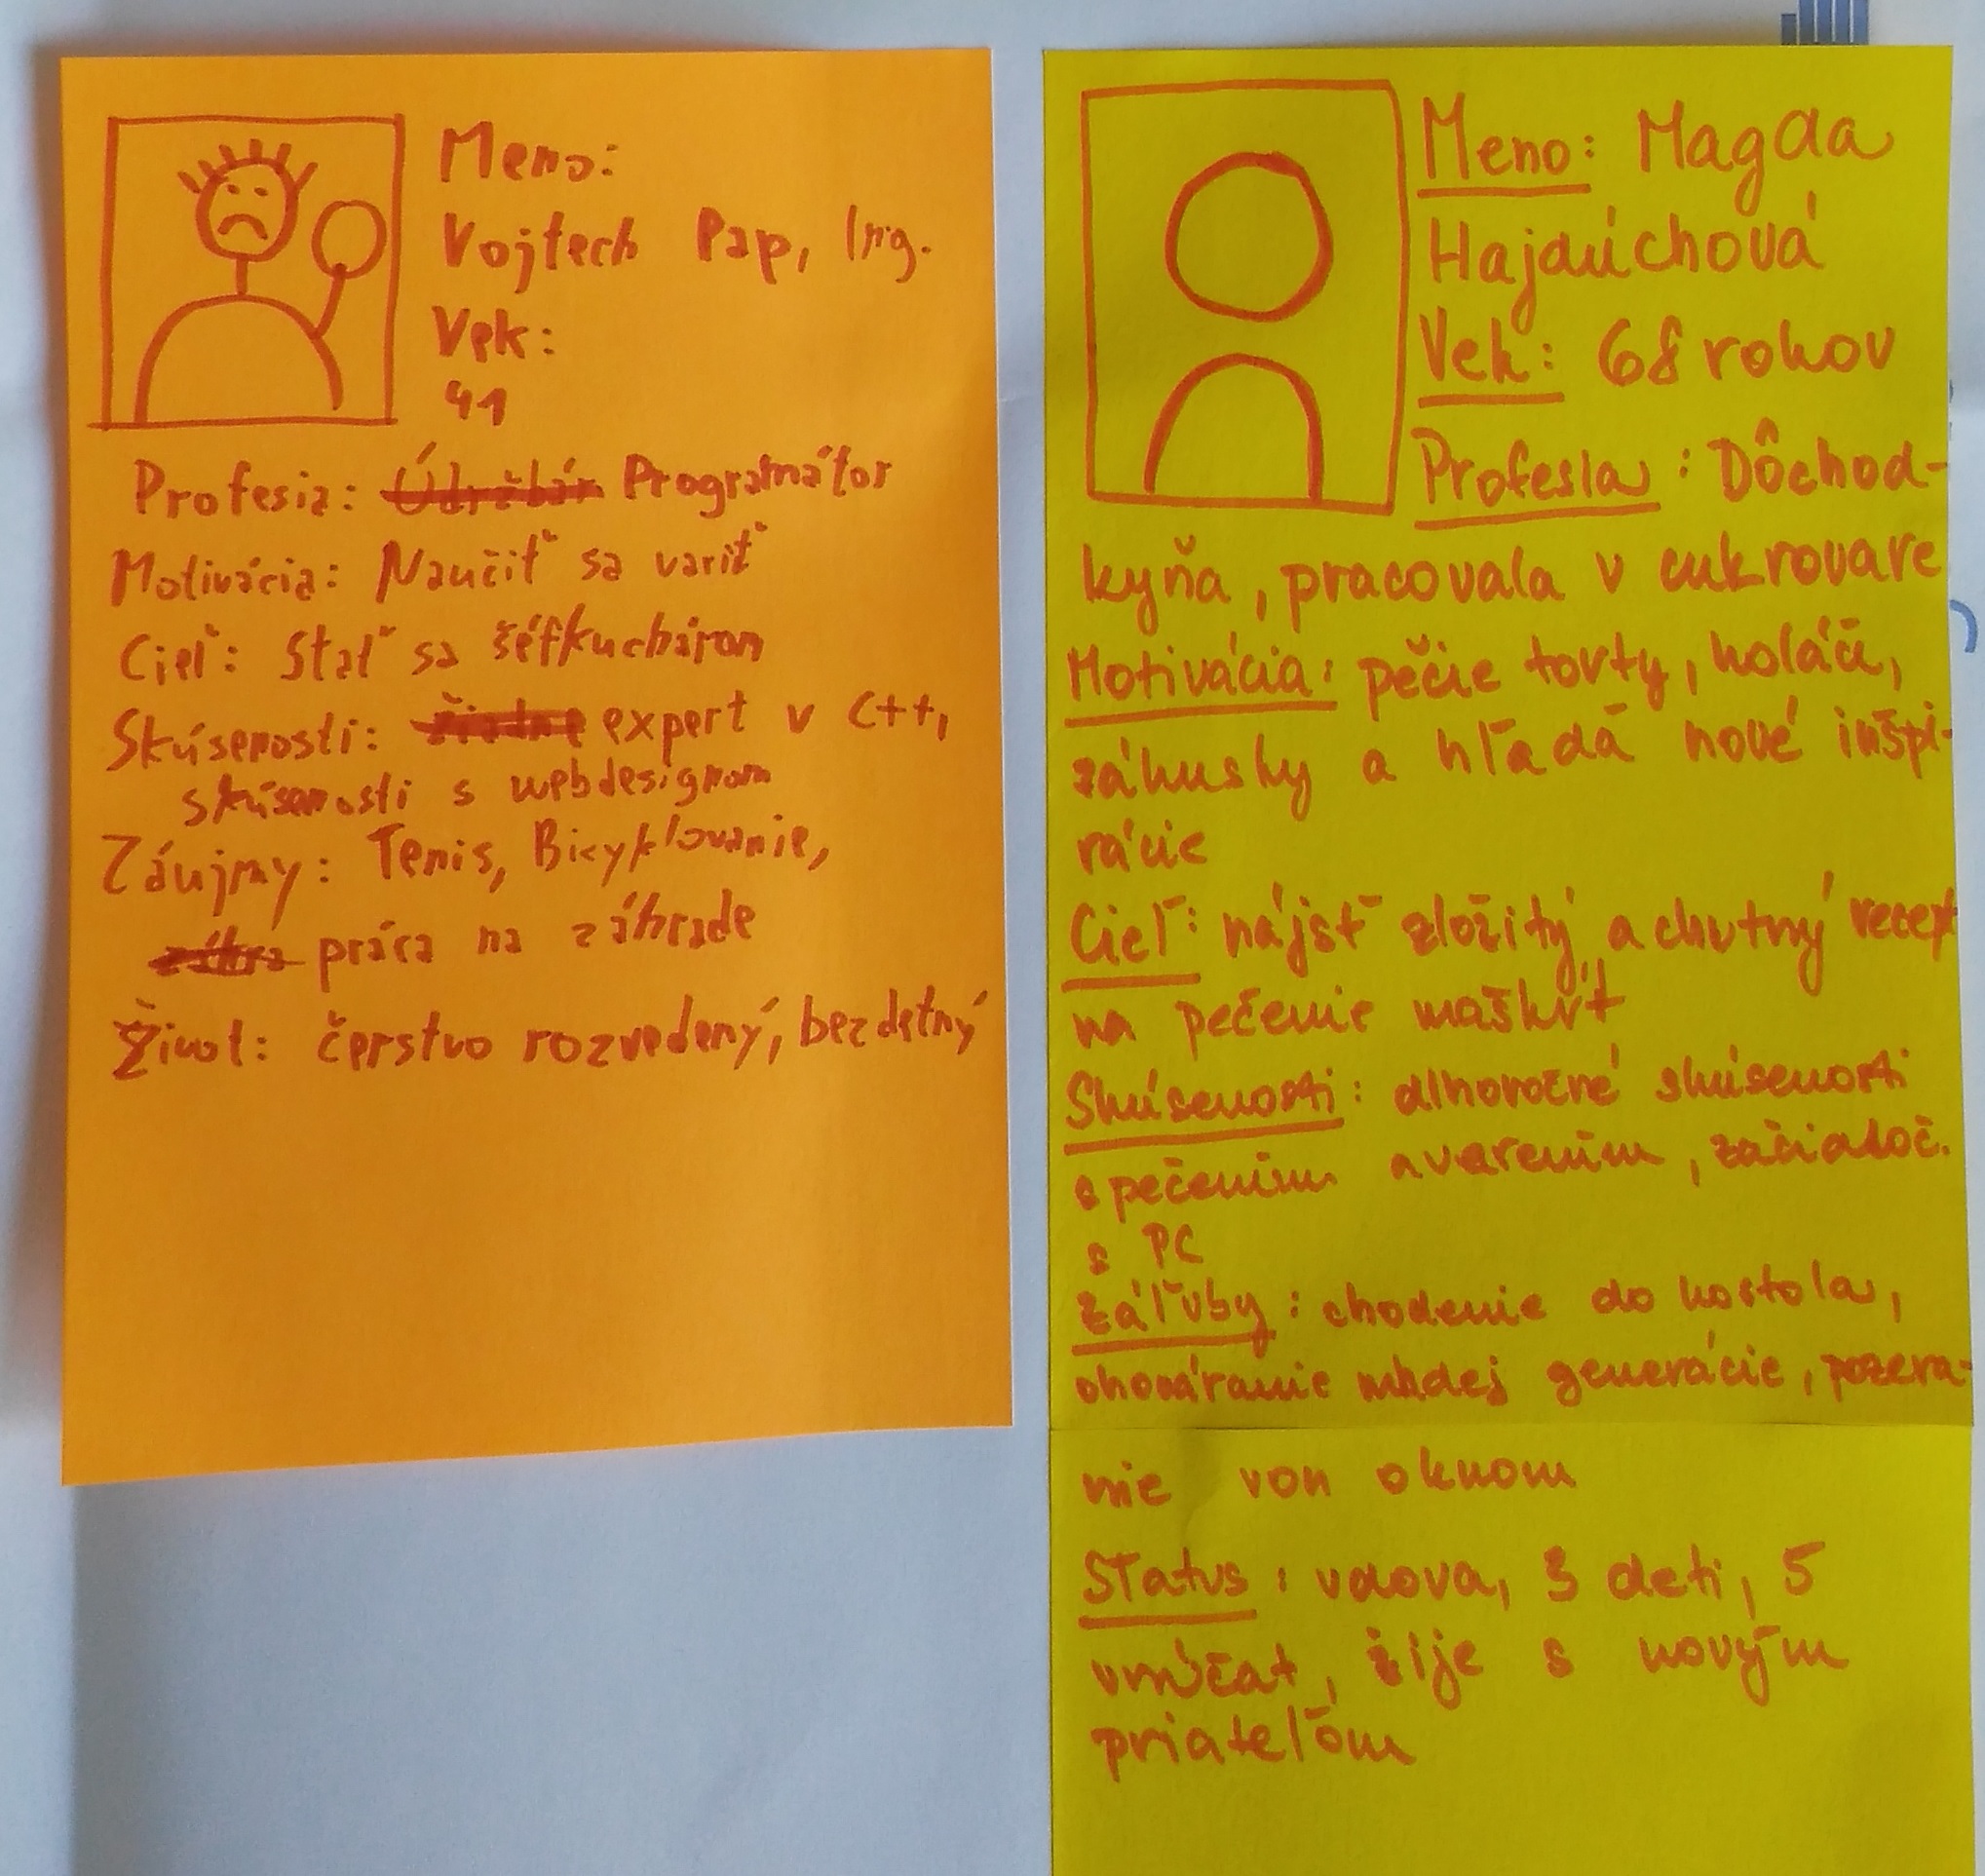 Meno:
Vojtech Pap, Ing.
Vek:
41
Profesia: Údržbár Programátor
Motivácia: Naučiť sa variť
Cieľ: Stať sa šéfkuchárom
Skúsenosti: Žiadne expert v C++,
skúsenosti s webdesignom
Záujmy: Tenis, Bicyklovanie,
záhra práca na záhrade
Život: čerstvo rozvedený, bezdetný
Meno: Magda
Hajdúchová
Vek: 68 rokov
Profesia: Dôchod-
kyňa, pracovala v cukrovare
Motivácia: pečie torty, koláče,
zákusky a hľadá nové inšpi-
rácie
Cieľ: nájsť zložitý a chutný recept
na pečenie maškŕt
Skúsenosti: dlhoročné skúsenosti
s pečením a varením, začiatoč.
s PC
záľuby: chodenie do kostola,
ohováranie mladej generácie, pozera-
nie von oknom
Status: vdova, 3 deti, 5
vnúčat, žije s novým
priateľom